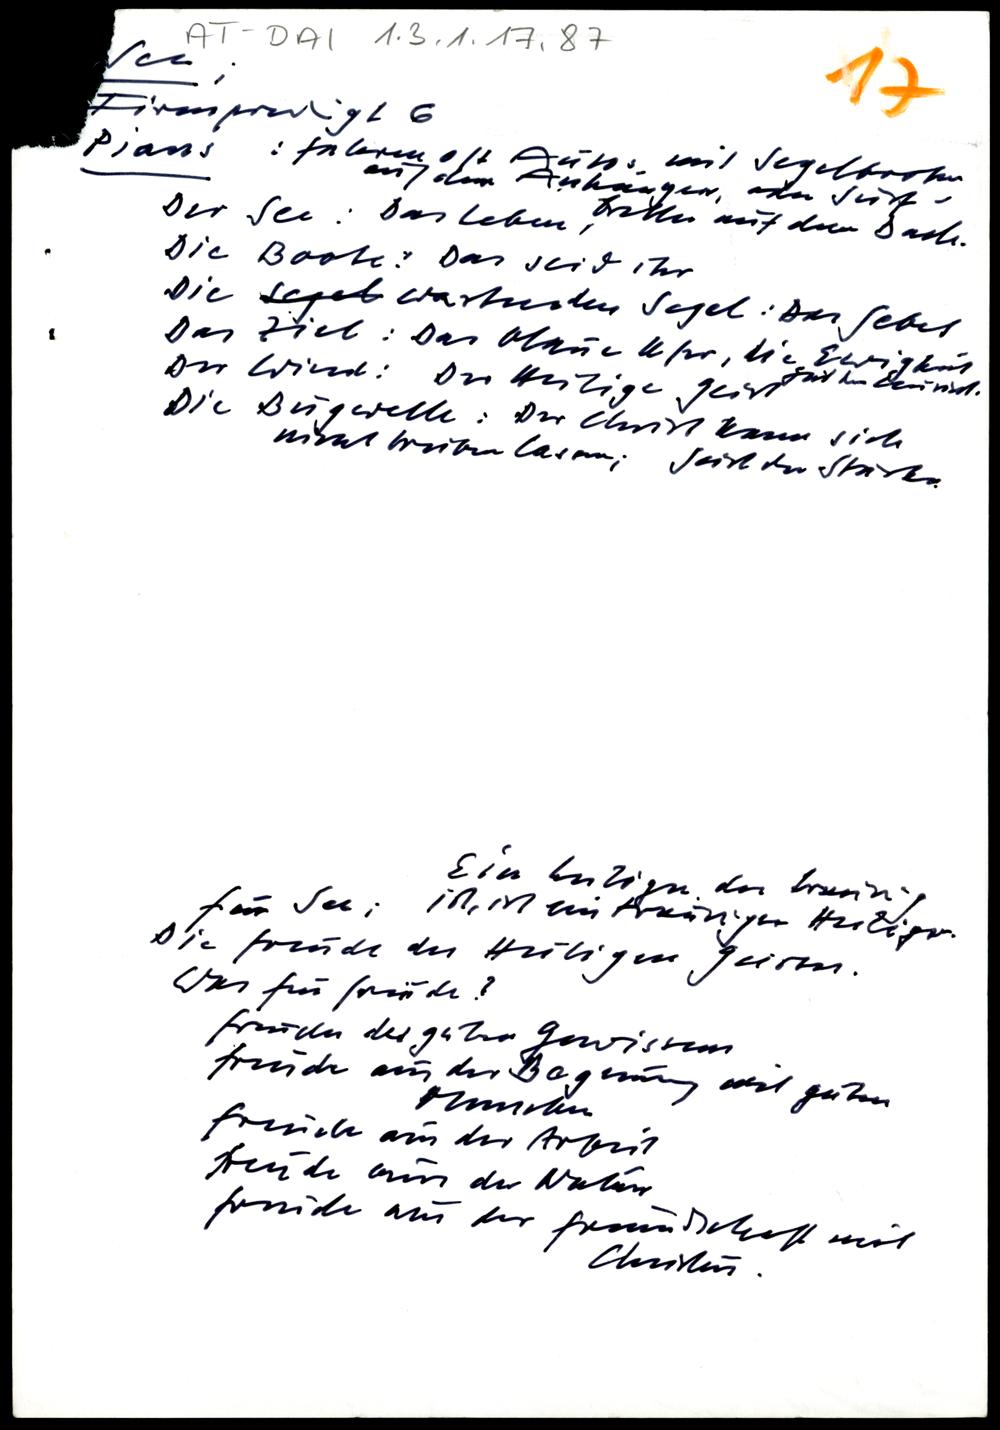 AT-DAI 1.3.1.17.87
17
See ;
Firmpredigt 6
Pians : fahren oft Autos mit Segelbooten
auf dem Anhänger, oder Surf-
Der See : Das Leben, bretter auf dem Dach.
Die Boote : Das seid ihr
Die Segel wartenden Segel : Das Gebet
Das Ziel : Das blaue Ufer, die Ewigkeit
Der Wind : Der Heilige Geist
Die Bugwelle : Der Christ kann sich
nicht treiben lassen; Geist der Stärke.
Ein Heiliger, der traurig
für See ; ist, ist ein trauriger Heiliger.
Die Freude des Heiligen Geistes.
Was für Freude ?
Freude des guten Gewissens
Freude aus der Begegnung mit guten
Menschen
Freude aus der Arbeit
Freude aus der Natur
Freude aus der Freundschaft mit
Christus.